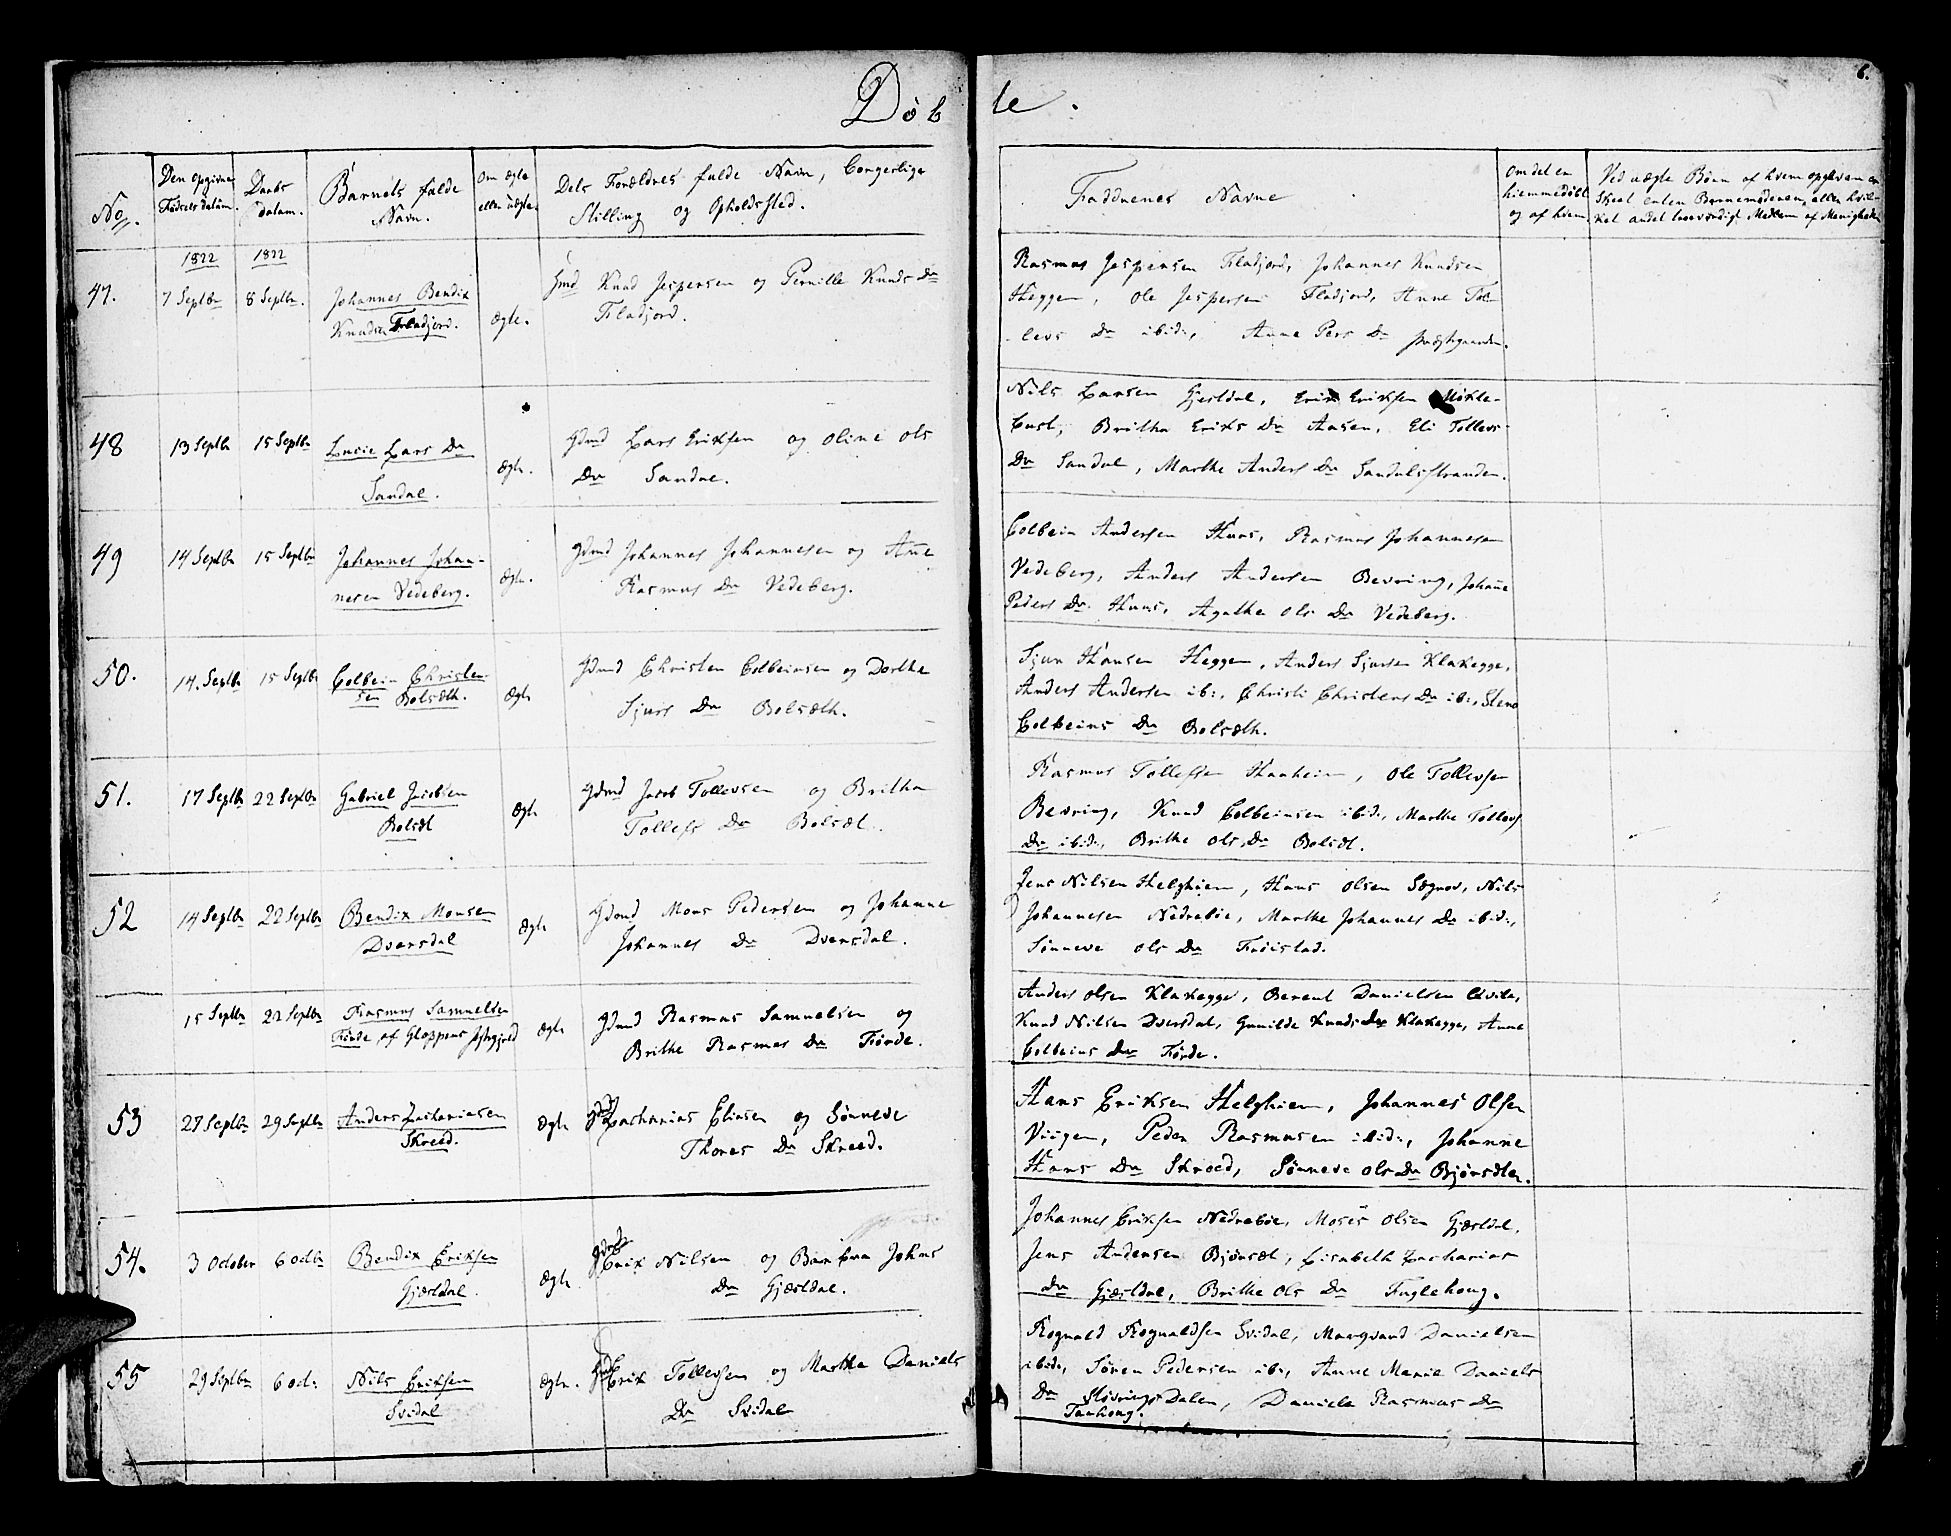 6.
Døbte.
No.
Den opgivne Fødsels datum.
Daabs datum.
Barnets fulde Navn.
Om ægte eller uægte.
Dets Forældres fulde Navn, borgerlige Stilling og Opholdssted.
Faddernes Navne
Om det er hiemmedøbt og af hvem
Ved uægte Børn af hvem opgivem er skeet enten Barnemoderen, eller hvilket andet troeværdigt Medlem af Menigheden
1822 1822
47. 7 Septbr 8 Septbr. Johannes Bendix
Knudsen Fladjord. Ægte.
Gmd Knud Jespersen og Pernille Knuds Dr
Fladjord.
Rasmus Jespersen Fladjord, Johannes Knudsen
Heggem, Ole Jespersen Fladjord, Anne Tol-
levs Dr ibid:, Anne Pers Dr præstgaarden.
48 13 Septbr 15 Septbr Lucie Lars Dr
Sandal. Ægte.
Gdmd Lars Eriksen og Oline Ols
Dr Sandal.
Nils Larsen Gjesdal, Erik Eriksen Mykle-
bust, Britha Eriks Dr Aasen, Eli Tollevs
Dr Sandal, Marthe Anders Dr Sandalsstranden.
49 14 Septbr 15 Septbr Johannes Johan-
nesen Vedeberg. Ægte.
Gdmd Johannes Johannesen og Ane
Rasmus Dr Vedeberg.
Colbein Andersen Huus, Rasmus Johannesen
Vedeberg, Anders Andersen Bevring, Johane
Peders Dr Huus, Agathe Ols Dr Vedeberg.
50. 14. Septbr 15 Septbr Colbein Christen-
sen Bolsæth. Ægte
Gdmd Christen Colbeinsen og Dorthe
Sjurs Dr Bolsæth.
Sjur Hansen Heggem, Anders Sjursen Klakegge,
Anders Andersen ib:, Christi Christens Dr ib:,
Colbeins Dr Bolsæth.
51. 17 Septbr 22 Septbr Gabriel Jacobsen
Bolsæt Ægte
Gdmd Jacob Tollevsen og Britha
Tollefs Dr Bolsæt.
Rasmus Tollefsen Haaheim, Ole Tollevsen
Bevring, Knud Colbeinsen ibid:, Marthe Tollevs
Dr ibid:, Brithe Ols Dr Bolsæt.
52 14 Septbr 22 Septbr Bendix Monsen
Dvergsdal Ægte
Gdmd Mons Pedersen og Johanne
Johannes Dr Dvergsdal.
Jens Nilsen Helghiem, Hans Olsen Øegnov, Nils
Johannesen Nedrebøe, Marthe Johannes Dr ibid:,
Sønneve Ols Dr Frøistad.
15 Septbr 22 Septbr Rasmus Samuelsen
Førde af Gloppens Prstgjeld Ægte
Gdmd Rasmus Samuelsen og
Brithe Rasmus Dr Førde.
Anders Olsen Klakegge, Berent Danielsen Qvile,
Knud Nilsen Dversdal, Gunilde Knuds Dr Klakegge, Anne
Colbeins Dr Førde.
53 27 Septbr 29 Septbr Anders Zachariasen
Skreed. Ægte
Gdmd Zacharias Eliasen og Sønneve
Thores Dr Skreed.
Hans Eriksen Helghiem, Johannes Olsen
Viigen, Peder Rasmusen ibid:, Johanne
Hans Dr Skreed, Sønneve Ols Dr Bjørsæter.
54. 3 October 6 Octbr Bendix Eriksen
Gjæsdal. Ægte
Gdmd Erik Nilsen og Barbra Johns
Dr Gjæsdal.
Johannes Eriksen Nedrebøe, Moses Olsen Gjæsdal,
Jens Andersen Bjørsæt, Lisabeth Zacharias
Dr Gjæsdal, Brithe Ols Dr Fuglehoug.
55 29 Septbr 6 Oct: Nils Eriksen
Svidal Ægte.
Gmd Erik Tollevsen og Marthe Daniels
Dr Svidal
Rognald Rognaldsen Svidal, Marqvard Danielsen
ibid:, Søren Pedersen ib:, Anne Marie Daniels
Dr StøvringsDalen, Daniele Rasmus Dr
Fanhoug.